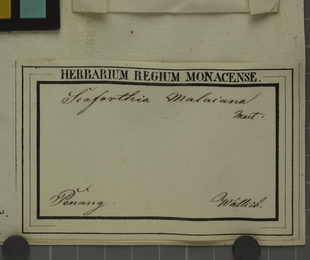 HERBARIUM REGIUM MONACENSE.
Seaforthia Malaiana
Mart.
Penang.
Wallich.